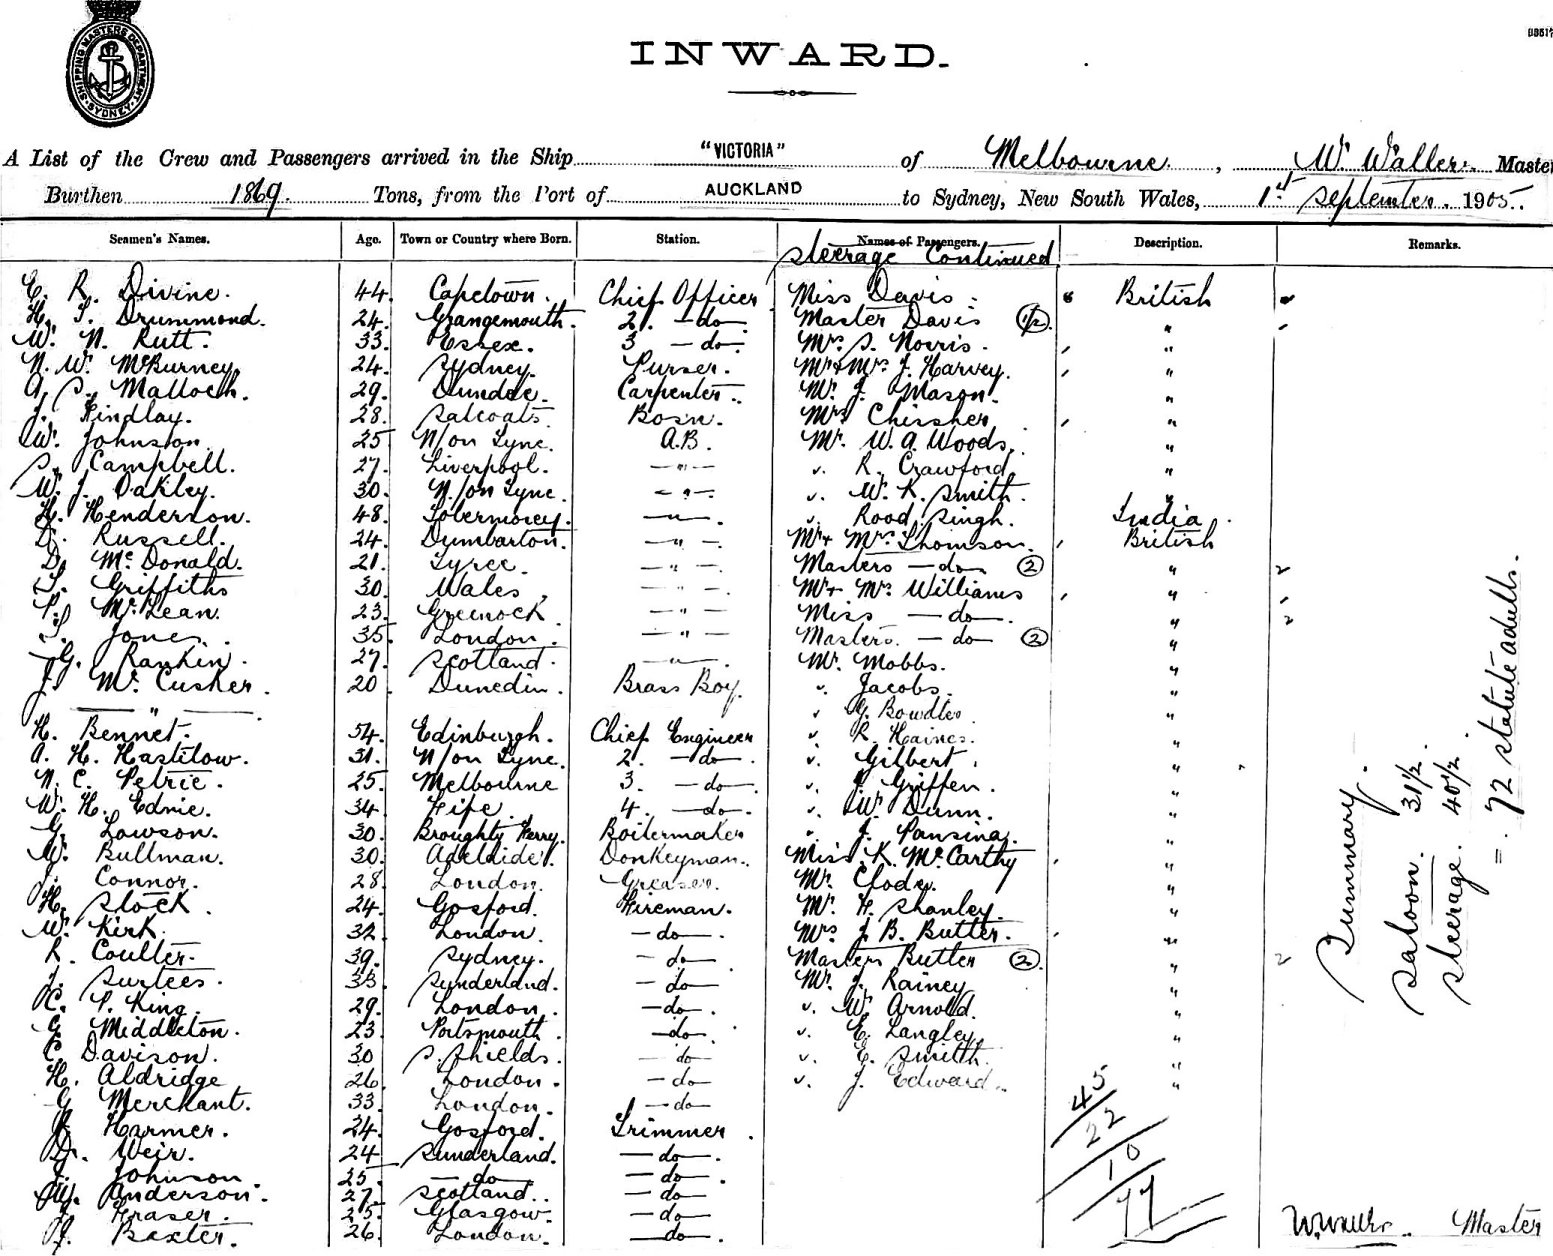 SHIPPING MASTERS DEPARTMENT SYDNEY
INWARD.
A List of the Crew and Passengers arrived in the Ship "VICTORIA" of Melbourne, W. Waller Master
Burthen 1869. Tons, from the Port of AUCKLAND to Sydney, New South Wales, 1st September 1905.
Seamen's Names. Age. Town or Country where Born. Station. Names of Passengers. Description. Remarks.
Steerage Continued
E. R. Divine. 44. Capetown. Chief Officer Miss Davis. " British
H. J. Drummond. 24. Grangemouth. 2. -do- Master Davis (1/2) "
W. N. Rutt. 33. Essex. 3 -do- Mrs S. Norris. "
N. W. McBurney. 24. Sydney. Purser. Mr & Mrs J. Harvey. "
A. S. Malloch. 29. Dundee. Carpenter. Mr. J. Mason. "
J. Findlay. 28. Salcoats. Bosn. Mrs Chissher "
W. Johnston. 25 N/on Tyne. A.B. Mr. W. A. Woods. "
S. Campbell. 27. Liverpool. -"- " R. Crawford "
W. J. Oakley. 30. N/on Tyne. -"- " W. K. Smith. "
H. Henderson. 48. Tobermorey. -"- " Rood Singh. India.
D. Russell. 24. Dumbarton. -"- Mr & Mrs Thomson. British
D. McDonald. 21. Tyree. -"- Masters -do- (2) "
T. Griffiths 30. Wales. -"- Mr & Mrs Williams "
P. McLean. 23. Greenock -"- Miss -do- "
T. Jones. 35. London. -"- Masters -do- (2) "
G. Rankin. 27. Scotland. -"- Mr. Mobbs. "
J. McCusker. 20. Dunedin. Brass Boy. " Jacobs. "
-"- " G. Bowdler "
H. Bennet. 54. Edinburgh. Chief Engineer " R. Haines. "
A. H. Hastilow. 31. N/on Tyne. 2. -do- " Gilbert. "
N. C. Petrie. 25 Melbourne 3. -do- " J. Griffen. "
W. H. Ednie. 34. Fife. 4. -do- " W. Dunn. "
G. Lowson. 30. Broughty Ferry. Boilermaker " J. Pansina. "
W. Bullman. 30. Adelaide. Donkeyman. Miss K. McCarthy "
J. Connor. 28. London. Greaser. Mr. Clode. "
H. Stock. 24. Gosford. Fireman. Mr. H. Shanley. "
W. Kirk. 32. London. -do- Mrs J. B. Butler. "
R. Coulter. 39. Sydney. -do- Masters Butler (2) "
J. Surtees. 33. Sunderland. -do- Mr. J. Rainey "
C. P. King. 29. London. -do- " W. Arnold. "
G. Middleton. 23. Portsmouth. -do- " E. Langley. "
C. Davison. 30 S. Shields. -do- " E. Smith. "
H. Aldridge 26. London. -do- " J. Edward. "
G. Merchant. 33. London. -do-
J. Harmer. 24. Gosford. Trimmer.
D. Weir. 24 Sunderland. -do-
J. Johnson. 25 -do- -do-
W. Anderson. 27. Scotland. -do-
Fraser. 25. Glasgow. -do-
J. Baxter. 26. London. -do-
45
22
10
77
Summary.
Saloon. 31 1/2.
Steerage. 40 1/2.
= 72 statute adults.
W. Waller. Master